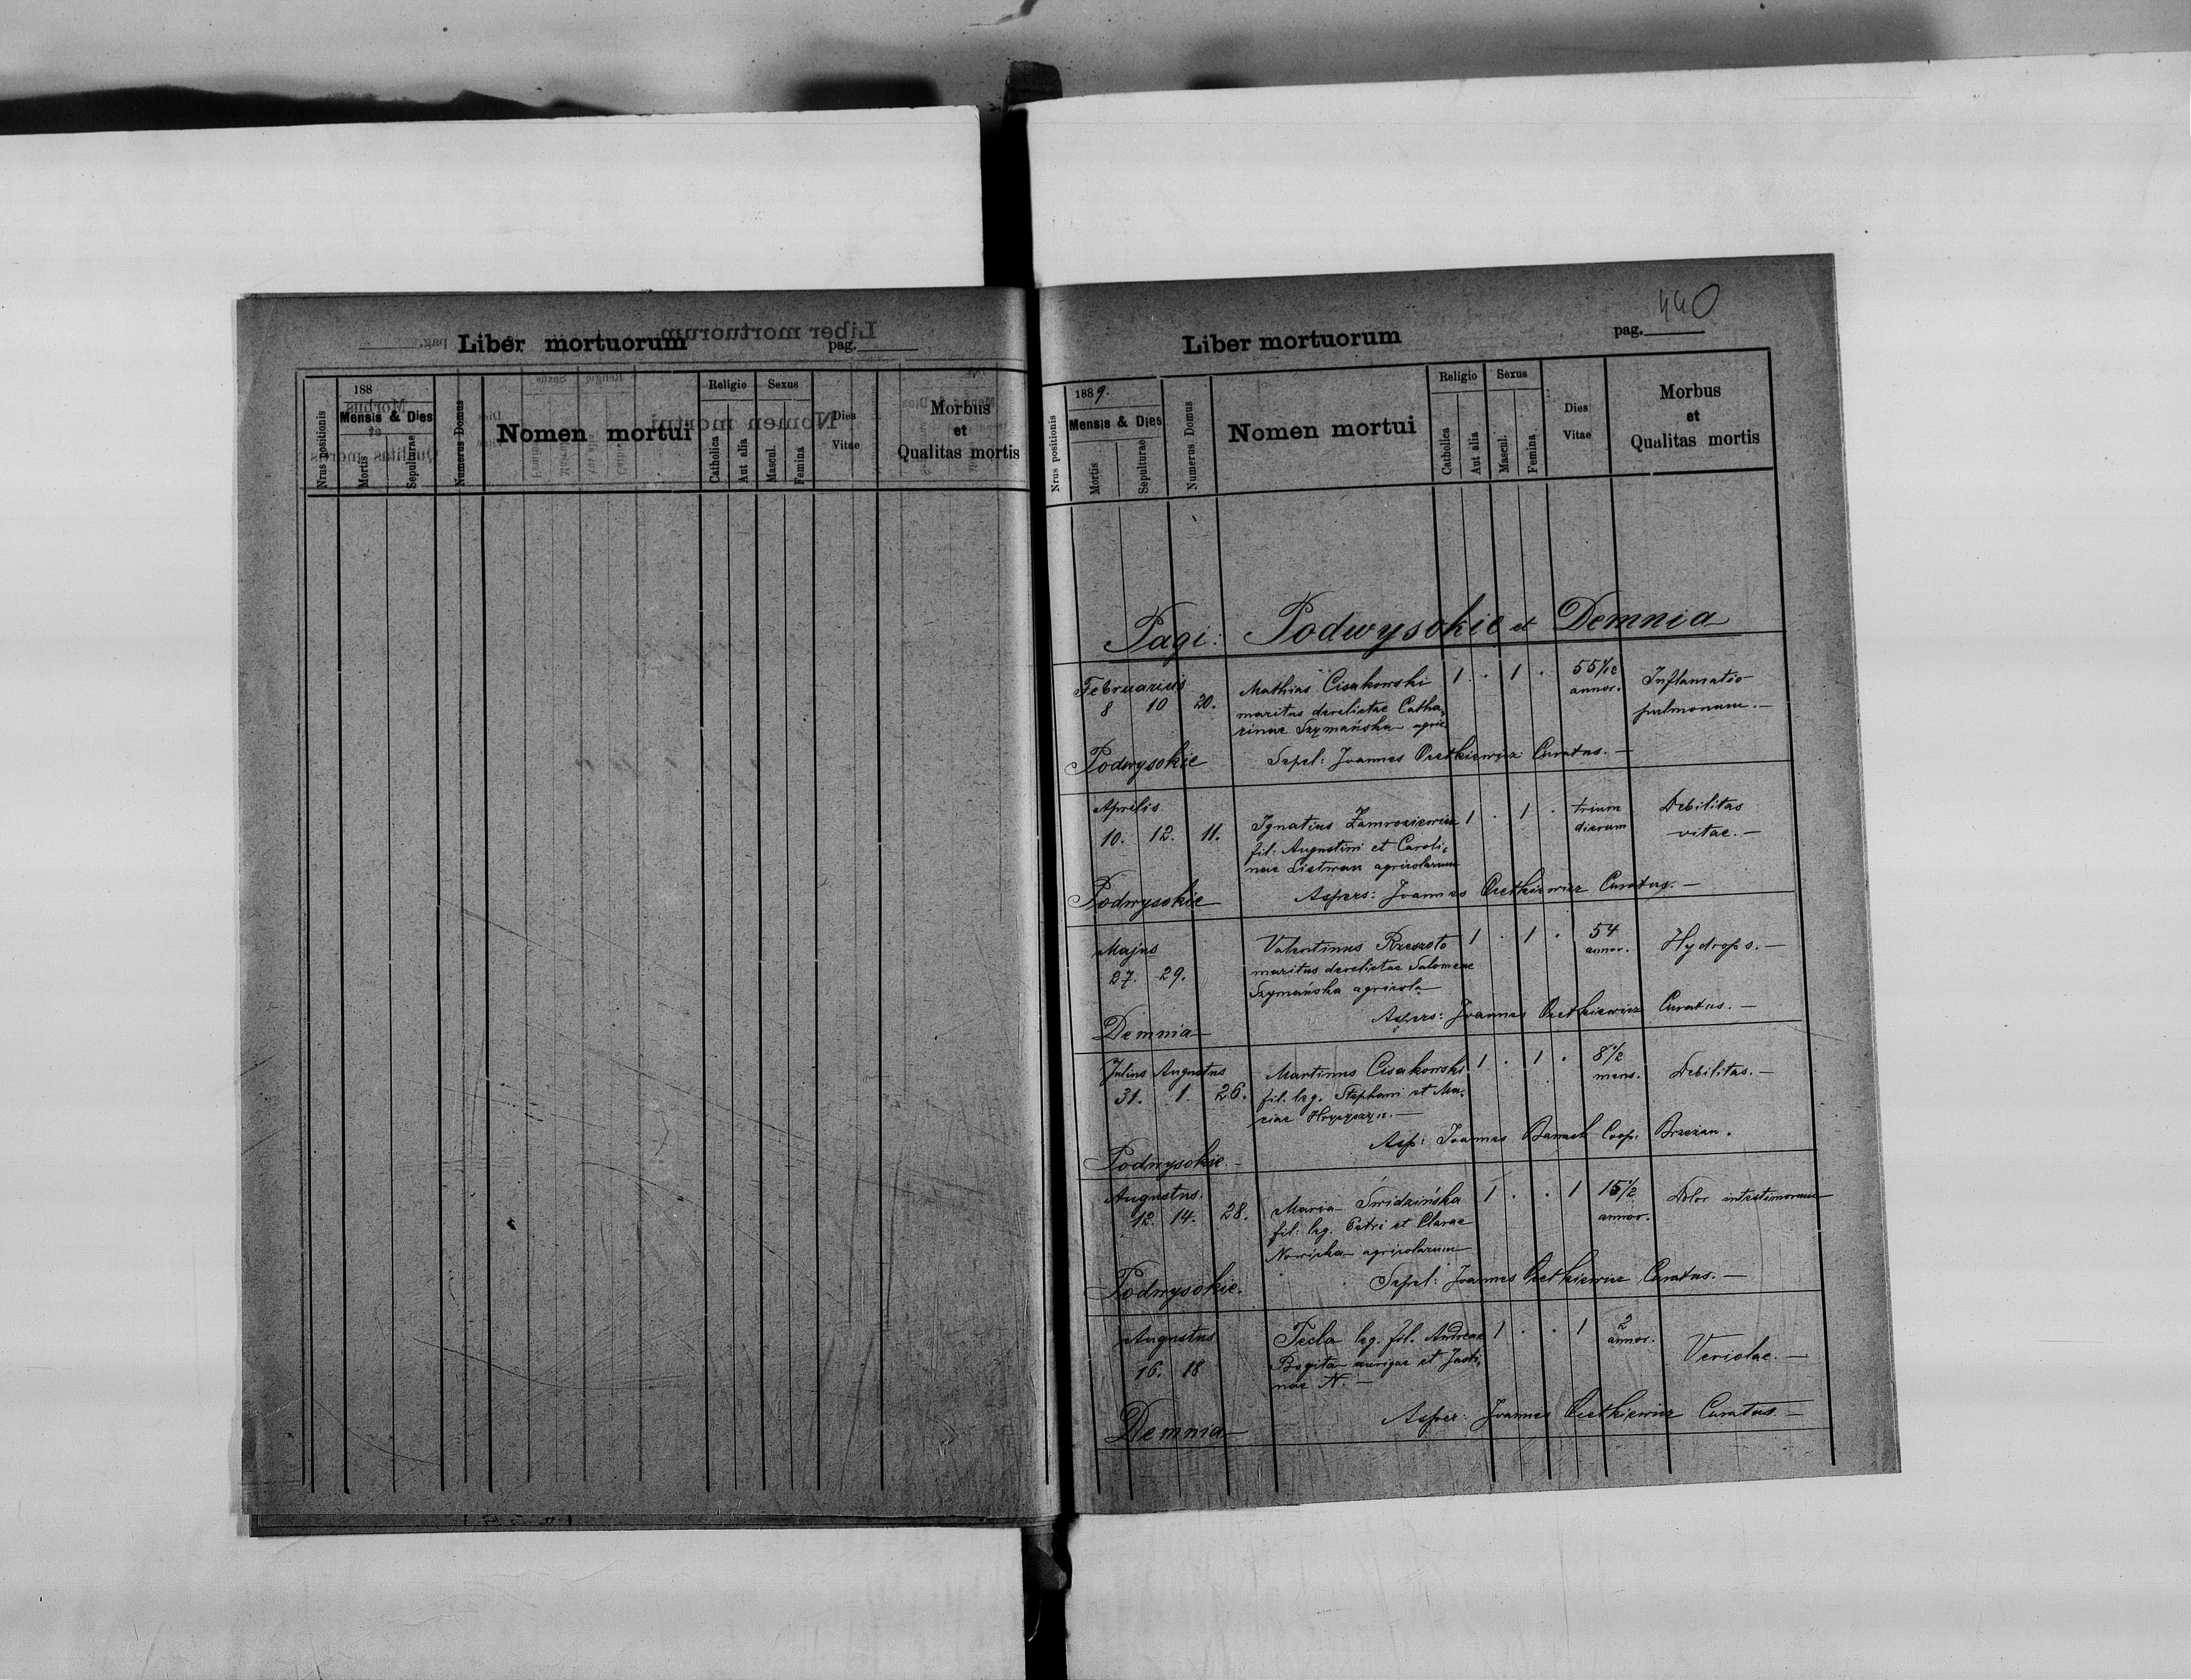 Liber mortuorum pag.
188
Mensis & Dies
Nrus positionis
Mortis
Sepulturae
Numerus Domus
Nomen mortui
Religio
Catholica
Aut alia
Sexus
Mascul.
Femina
Dies
Vitae
Morbus
et
Qualitas mortis
440
Liber mortuorum pag.
1889.
Mensis & Dies
Nrus positionis
Mortis
Sepulturae
Numerus Domus
Nomen mortui
Religio
Catholica
Aut alia
Sexus
Mascul.
Femina
Dies
Vitae
Morbus
et
Qualitas mortis
Pagi: Podwysokie et Demnia
Februarius Mathias Cisakowski 1 . 1 . 55 annor. Inflamatio
8 10 20. maritus derelictae Catha-
rinae Szymańska agric. pulmonum. —
Podwysokie Sepel: Joannes Oretkiewicz Curatus. —
Aprilis
10. 12. 11. Ignatius Zamroziewicz 1 . 1 . trium dierum Debilitas
fil: Augustini et Caroli- vitae. —
nae Listwan agricolarum
Podwysokie Aspers: Joannes Oretkiewicz Curatus. —
Majus Valentinus Rzeszoto 1 . 1 . 54 annor. Hydrops. —
27. 29. maritus derelictae Salomeae
Szymańska agricola
Aspers: Joannes Oretkiewicz Curatus. —
Demnia
Julius Augustus Martinus Cisakowski 1 . 1 . 8 1/2 mens. Debilitas. —
31. 1. 26. fil. leg. Stephani et Ma-
riae Hrycyszyn. —
Asp: Joannes Coop: Brzezan.
Podwysokie —
Augustus. Maria Świdzińska 1 . . 1 15 1/2 annor. Dolor intestinorum
12. 14. 28. fil: leg. Petri et Clarae
Nowicka agricolarum
Podwysokie. Sepel: Joannes Oretkiewicz Curatus. —
Augustus Tecla leg. fil. Andreae 1 . . 1 2 annor.
16. 18 aurigae et Justi- Veriolae. —
nae N. —
Asper: Joannes Oretkiewicz Curatus —
Demnia —